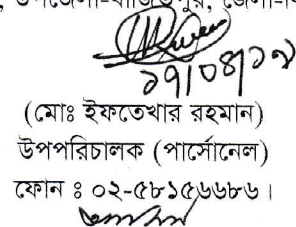 , উপজেলা-বাজিতপুর, জেলা-কি
১৭/০৪/১৭
(মোঃ ইফতেখার রহমান)
উপপরিচালক (পার্সোনেল)
ফোন ঃ ০২-৫৮১৫৬৬৮৬।